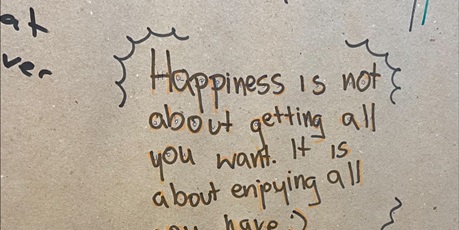 at
ver
Happiness is not
about getting all
you want. It is
about enjoying all
you have :)